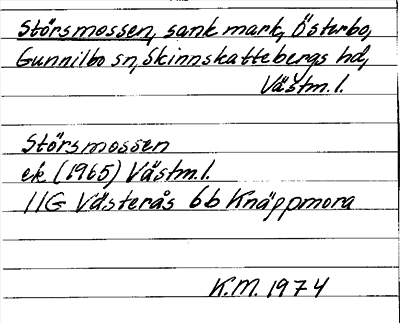 Störsmossen, sank mark, Österbo,
Gunnilbo sn, Skinnskattebergs hd,
Västm.l.
Störsmossen
ek (1965) Västm.l.
11G Västerås 6b Knäppmora
K.M. 1974